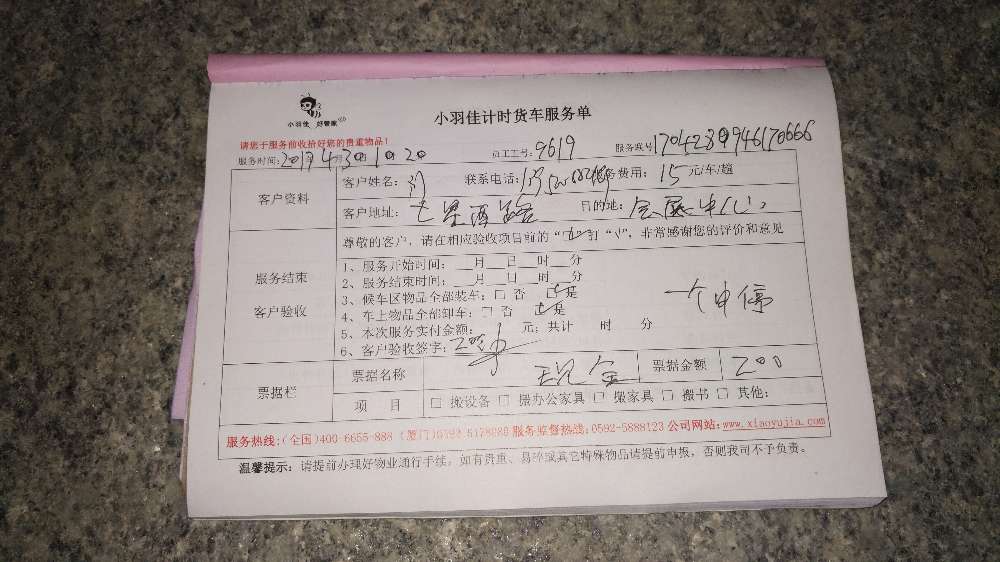 小羽佳 好管家
小羽佳计时货车服务单
请您于服务前收拾好您的贵重物品!
服务时间: 2017 4 30 10 20 员工工号: 9619 服务联号
客户资料 客户姓名: 联系电话: 服务费用: 15元/车/趟
客户地址: 七星西路 目的地: 会展中心
尊敬的客户，请在相应验收项目前的“□”打“√”,非常感谢您的评价和意见
服务结束
客户验收
1、服务开始时间: __月__日__时__分
2、服务结束时间: __月__日__时__分
3、候车区物品全部装车: □ 否 □是
4、车上物品全部卸车: □ 否 □是
5、本次服务实付金额: 元; 共计 时 分
6、客户验收签字:
一个中停
票据栏 票据名称 现金 票据金额 200
项 目 □ 搬设备 □ 搬办公家具 □ 搬家具 □ 搬书 □ 其他:
服务热线:(全国)400-6655-888 (厦门)0592-5178080 服务监督热线:0592-5888123 公司网站:www.xiaoyujia.com
温馨提示: 请提前办理好物业通行手续，如有贵重、易碎或其它特殊物品请提前申报，否则我司不予负责。